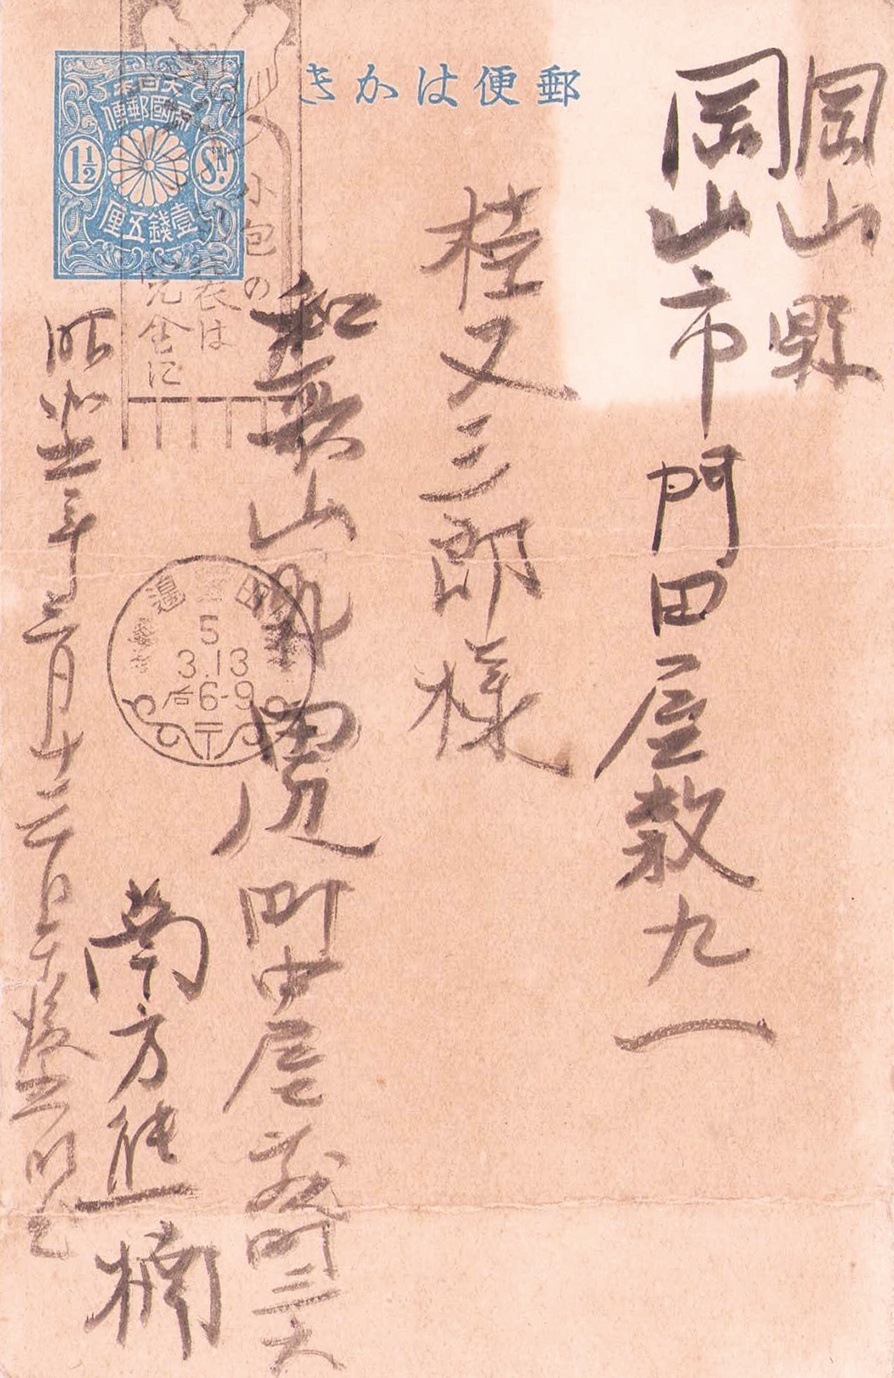 郵便はかき
大日本
帝國郵便
1½
SN.
壹錢五厘
小包の
包装は
完全に
岡山縣
岡山市門田屋敷九一
桂又三郎様
和歌山縣田辺町中屋敷町三六
南方熊楠
昭和五年三月十三日午後
田邊
5
3.13
后6-9
〒